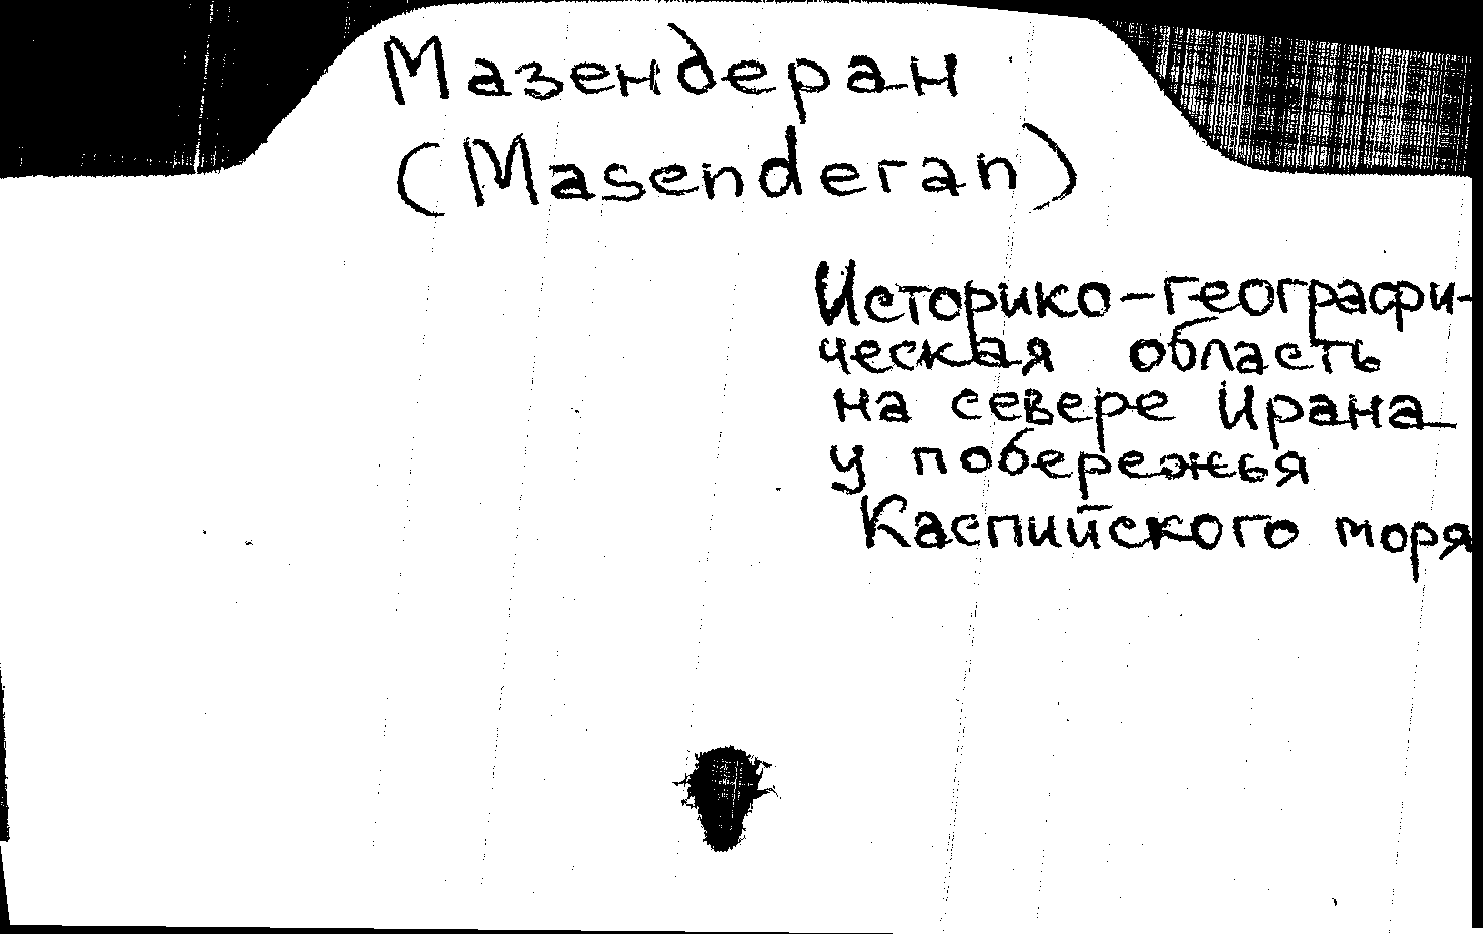 Мазендеран
(Masenderan)
Историко-географи-
ческая область
на севере Ирана
у побережья
Каспийского моря